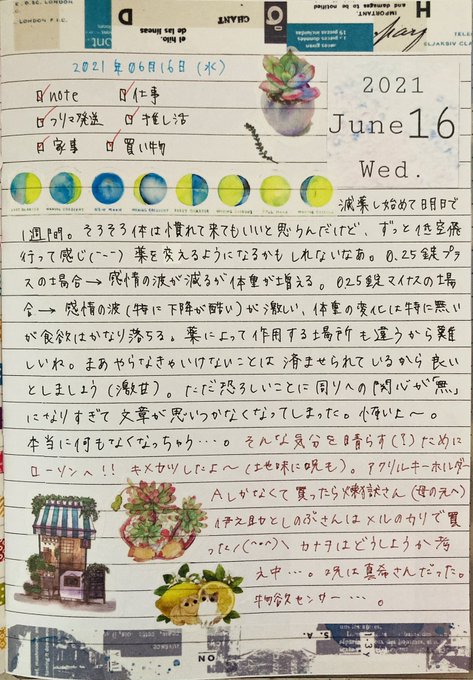 LONDON
CHANT
el hilo
de las líneas
IMPORTANT.
H
2021年06月16日(水)
note 仕事
フリマ発送 推し活
家事 買い物
2021
June 16
Wed.
減薬し始めて明日で
1週間。そろそろ体は慣れて来てもいいと思うんだけど、ずっと低空飛
行って感じ(ーー) 薬を変えるようになるかもしれないなあ。0.25錠プラ
スの場合→感情の波が減るが体重が増える。0.25錠マイナスの場
合→感情の波(特に下降が酷い)が激しい、体重の変化は特に無い
が食欲はかなり落ちる。薬によって作用する場所も違うから難
しいね。まあやらなきゃいけないことは済ませられているから良い
としましょう(激甘)。ただ恐ろしいことに周りへの関心が「無」
になりすぎて文章が思いつかなくなってしまった。怖いよ〜。
本当に何もなくなっちゃう…。そんな気分を晴らす(?)ために
ローソンへ!!キメセツしたよ〜(地味に呪も)。アクリルキーホルダー
Aしかなくて買ったら煉獄さん(母の元へ)
伊之助としのぶさんはメルカリで買
った/(^o^)\ カナヲはどうしようか考
え中…。呪は真希さんだった。
物欲センサー…。
ON